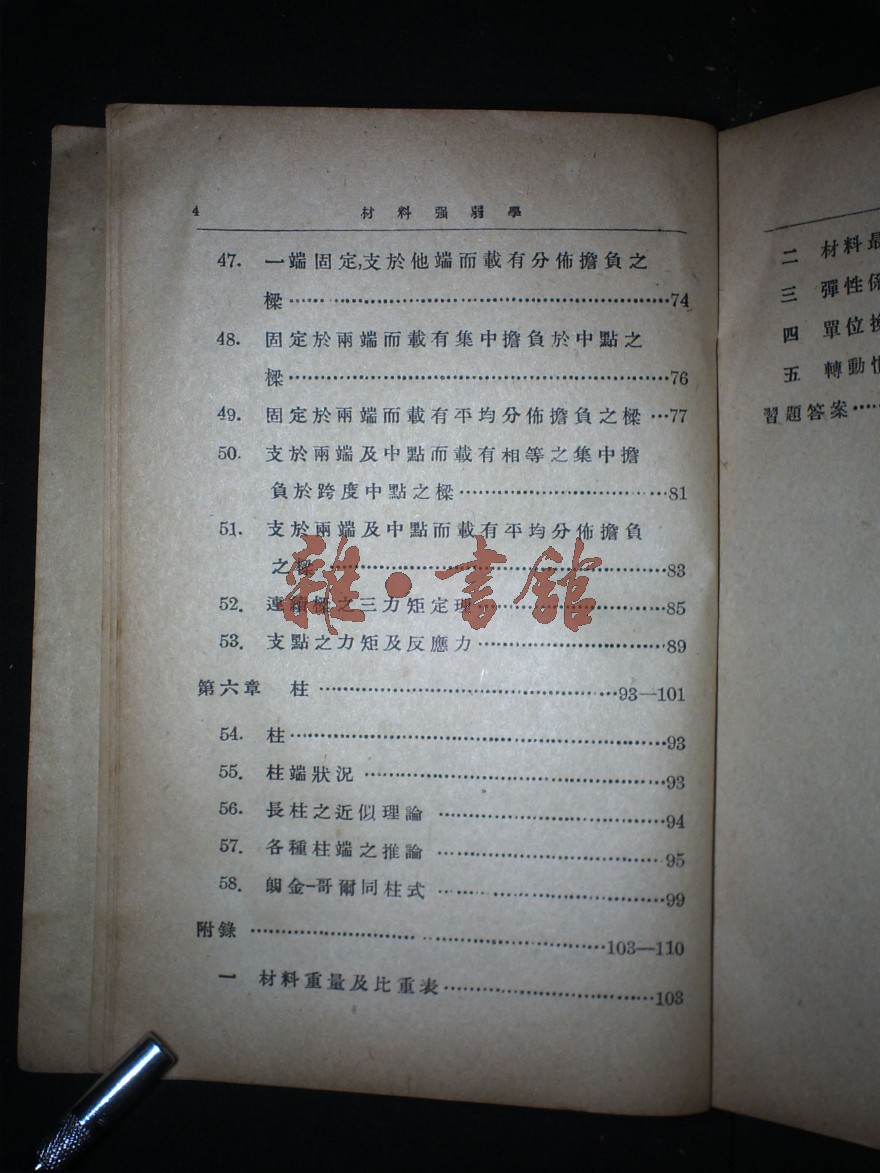 4 材料强弱學
47. 一端固定,支於他端而載有分佈擔負之
樑……74
48. 固定於兩端而載有集中擔負於中點之
樑……76
49. 固定於兩端而載有平均分佈擔負之樑…77
50. 支於兩端及中點而載有相等之集中擔
負於跨度中點之樑……81
51. 支於兩端及中點而載有平均分佈擔負
之樑……83
52. 連續樑之三力矩定理……85
53. 支點之力矩及反應力……89
第六章 柱……93—101
54. 柱……93
55. 柱端狀况……93
56. 長柱之近似理論……94
57. 各種柱端之推論……95
58. 金-哥爾同柱式……99
附錄……103—110
一 材料重量及比重表……103
二 材料最
三 彈性係
四 單位換
五 轉動慣
習題答案……
雜·書館